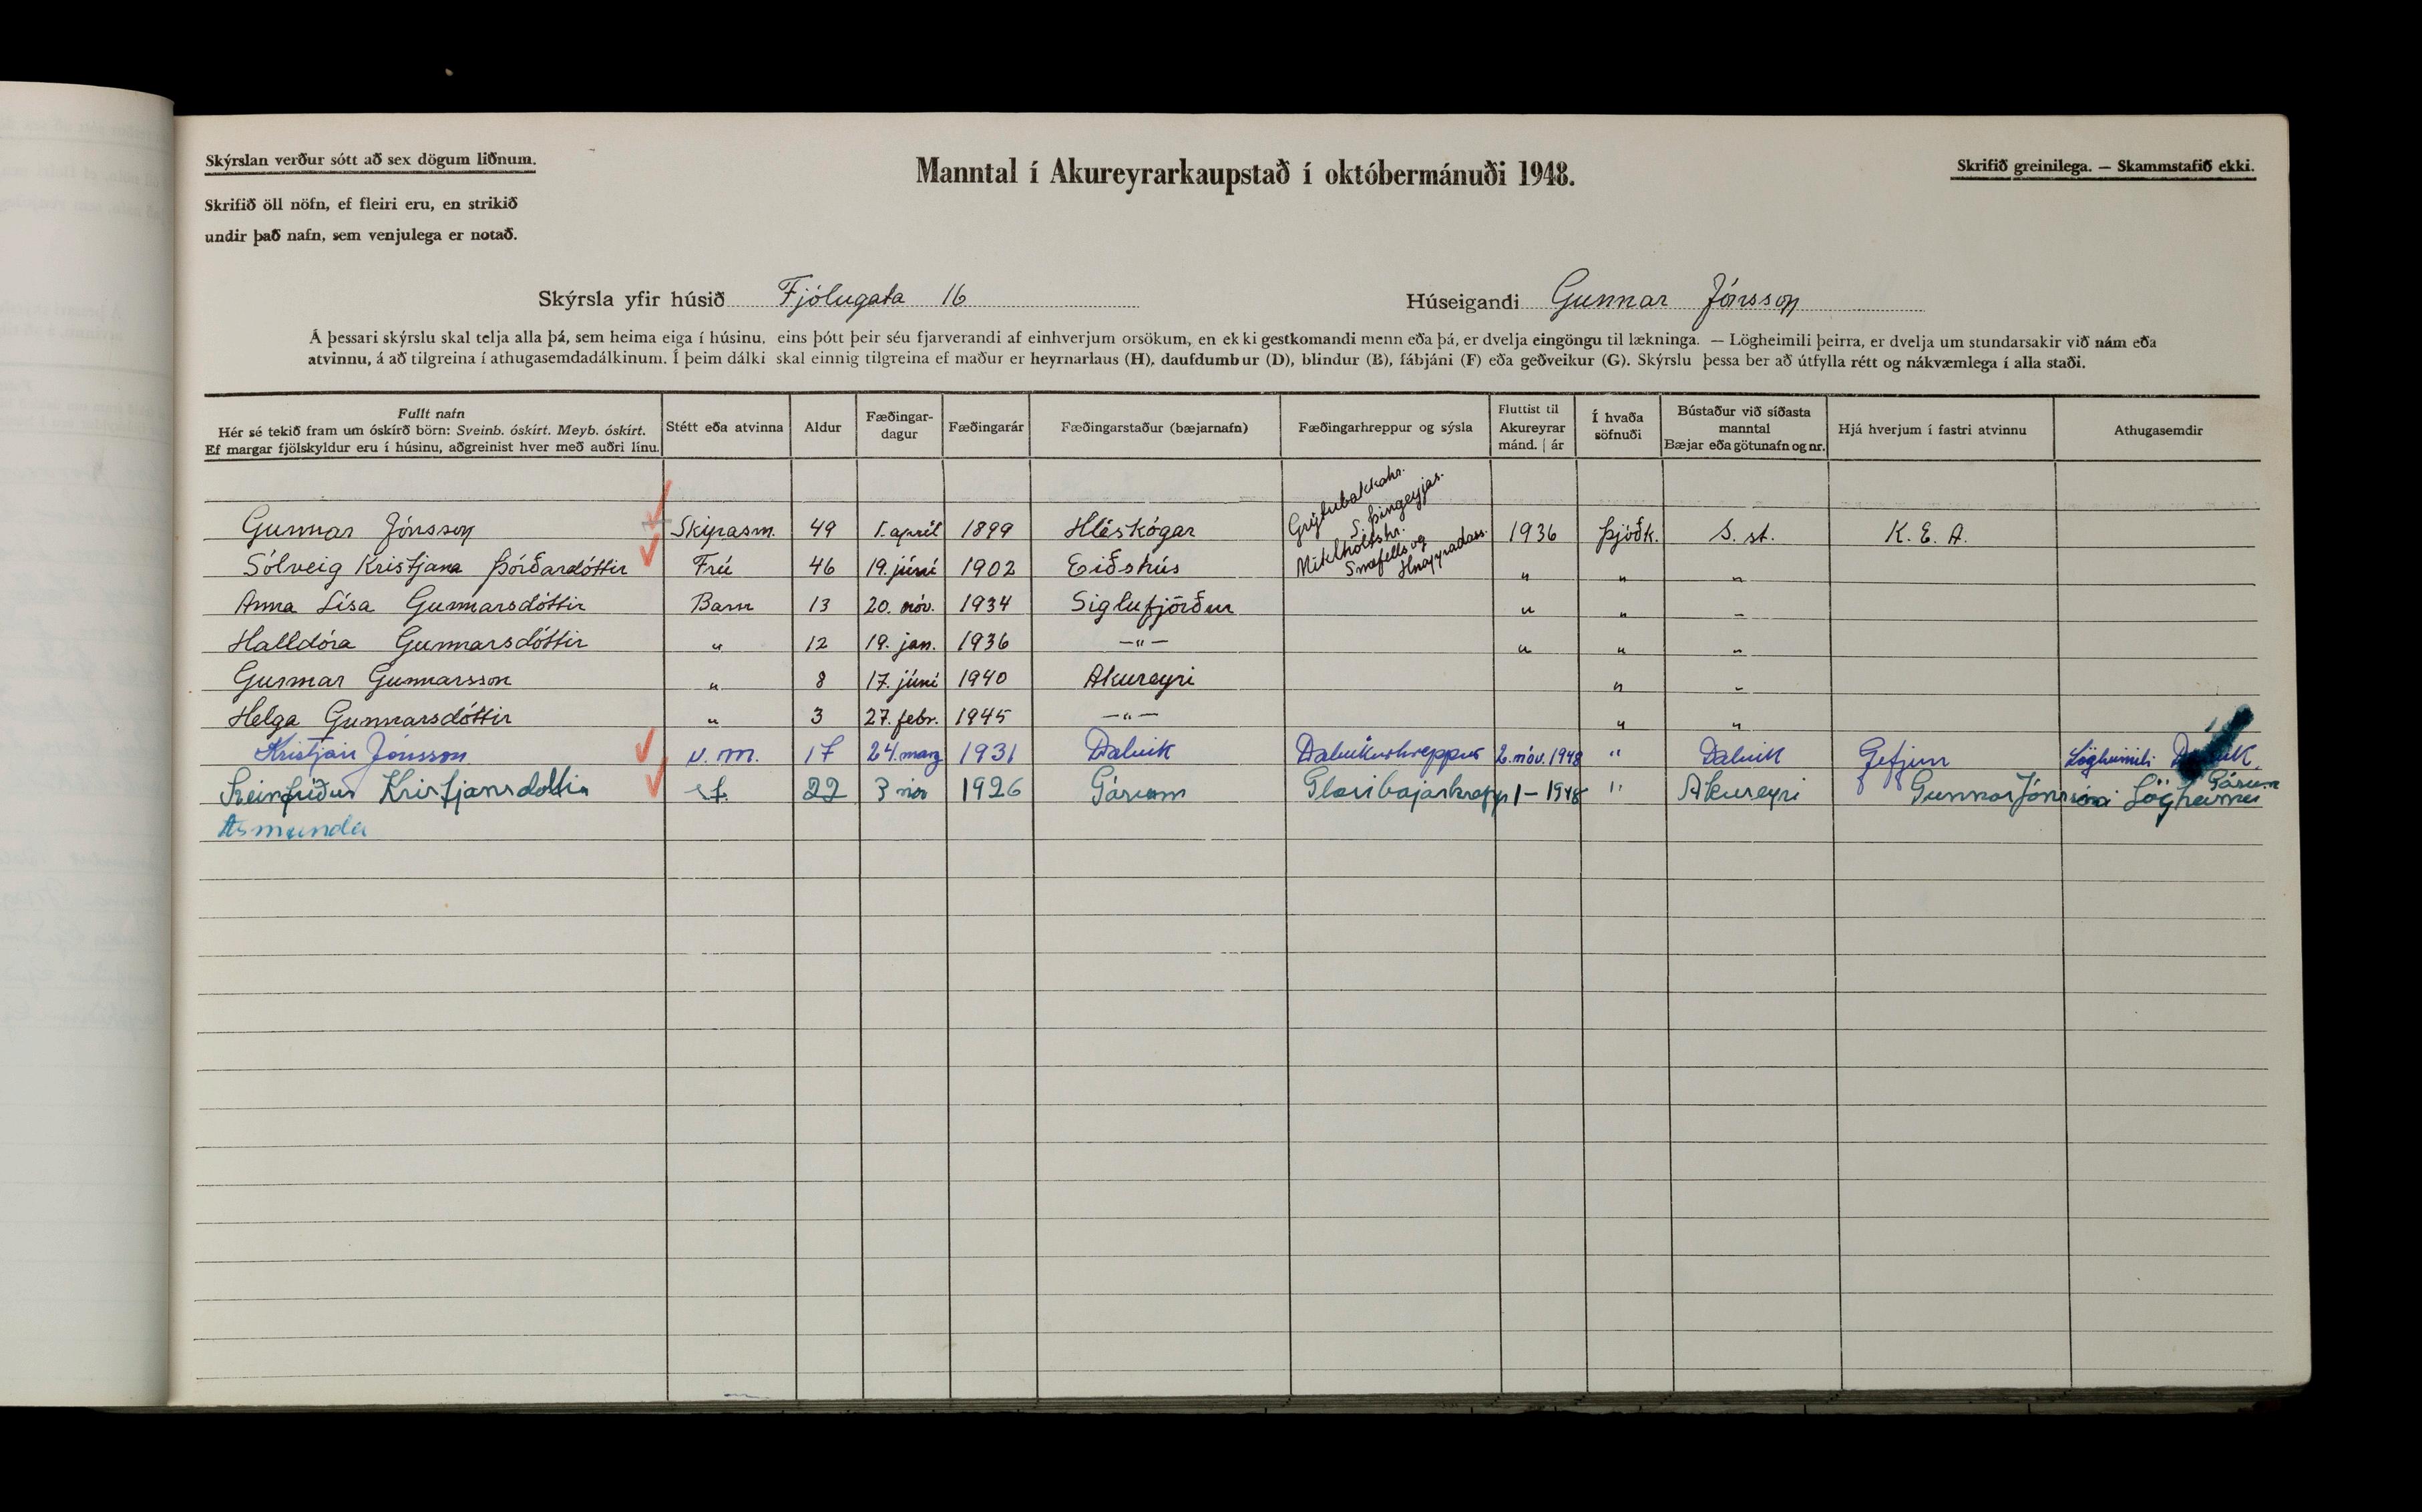 Skýrslan verður sótt að sex dögum liðnum.
Manntal í Akureyrarkaupstað í októbermánuði 1948.
Skrifið greinilega. — Skammstafið ekki.
Skrifið öll nöfn, ef fleiri eru, en strikið
undir það nafn, sem venjulega er notað.
Skýrsla yfir húsið Fjólugata 16 Húseigandi Gunnar Jónsson
Á þessari skýrslu skal telja alla þá, sem heima eiga í húsinu, eins þótt þeir séu fjarverandi af einhverjum orsökum, en ekki gestkomandi menn eða þá, er dvelja eingöngu til lækninga. — Lögheimili þeirra, er dvelja um stundarsakir við nám eða
atvinnu, á að tilgreina í athugasemdadálkinum. Í þeim dálki skal einnig tilgreina ef maður er heyrnarlaus (H), daufdumbur (D), blindur (B), fábjáni (F) eða geðveikur (G). Skýrslu þessa ber að útfylla rétt og nákvæmlega í alla staði.
Fullt nafn
Hér sé tekið fram um óskírð börn: Sveinb. óskírt. Meyb. óskírt.
Ef margar fjölskyldur eru í húsinu, aðgreinist hver með auðri línu.
Stétt eða atvinna
Aldur
Fæðingar-
dagur
Fæðingarár
Fæðingarstaður (bæjarnafn)
Fæðingarhreppur og sýsla
Fluttist til
Akureyrar
mánd. | ár
Í hvaða
söfnuði
Bústaður við síðasta
manntal
Bæjar eða götunafn og nr.
Hjá hverjum í fastri atvinnu
Athugasemdir
Gunnar Jónsson Skipasm. 49 1. apríl 1899 Hléskógar Grýtubakkahr. S. Þingeyjas. 1936 Þjóðk. S. st. K. E. A.
Sólveig Kristjana Þórðardóttir Frú 46 19. júní 1902 Eiðshús Miklholtshr. Snæfells og Hnappadals. " " "
Anna Lísa Gunnarsdóttir Barn 13 20. nóv. 1934 Siglufjörður " " "
Halldóra Gunnarsdóttir " 12 19. jan. 1936 —"— " " "
Gunnar Gunnarsson " 8 17. júní 1940 Akureyri " "
Helga Gunnarsdóttir " 3 27. febr. 1945 —"— " "
Kristján Jónsson v. m. 17 24. marz 1931 Dalvik Dalvikurhreppur 2. nóv. 1948 " Dalvik Gefjun Lögheimili
Steinfríður Kristjansdottir st. 22 3 nov 1926 Gásum Glæsibajarhrepp 1 — 1948 " Akureyri Gunnar Jónssoni Lögheimili Gásum
Asmunda